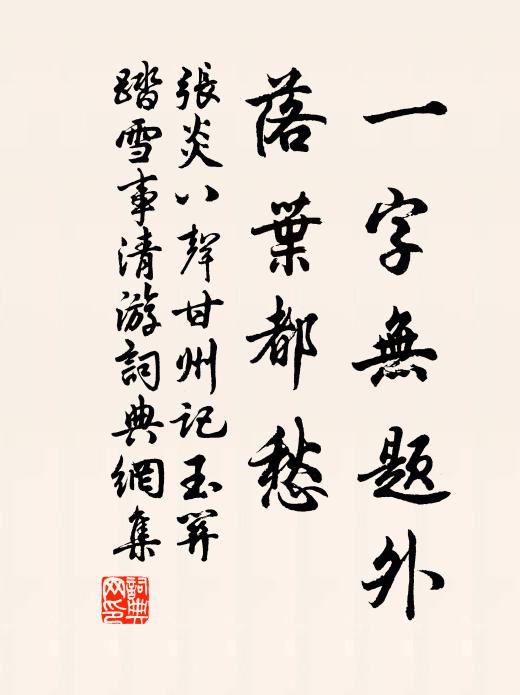 一字無題外
落葉都愁
張炎八聲甘州記玉關
踏雪事清游詞典網集
詞典網印